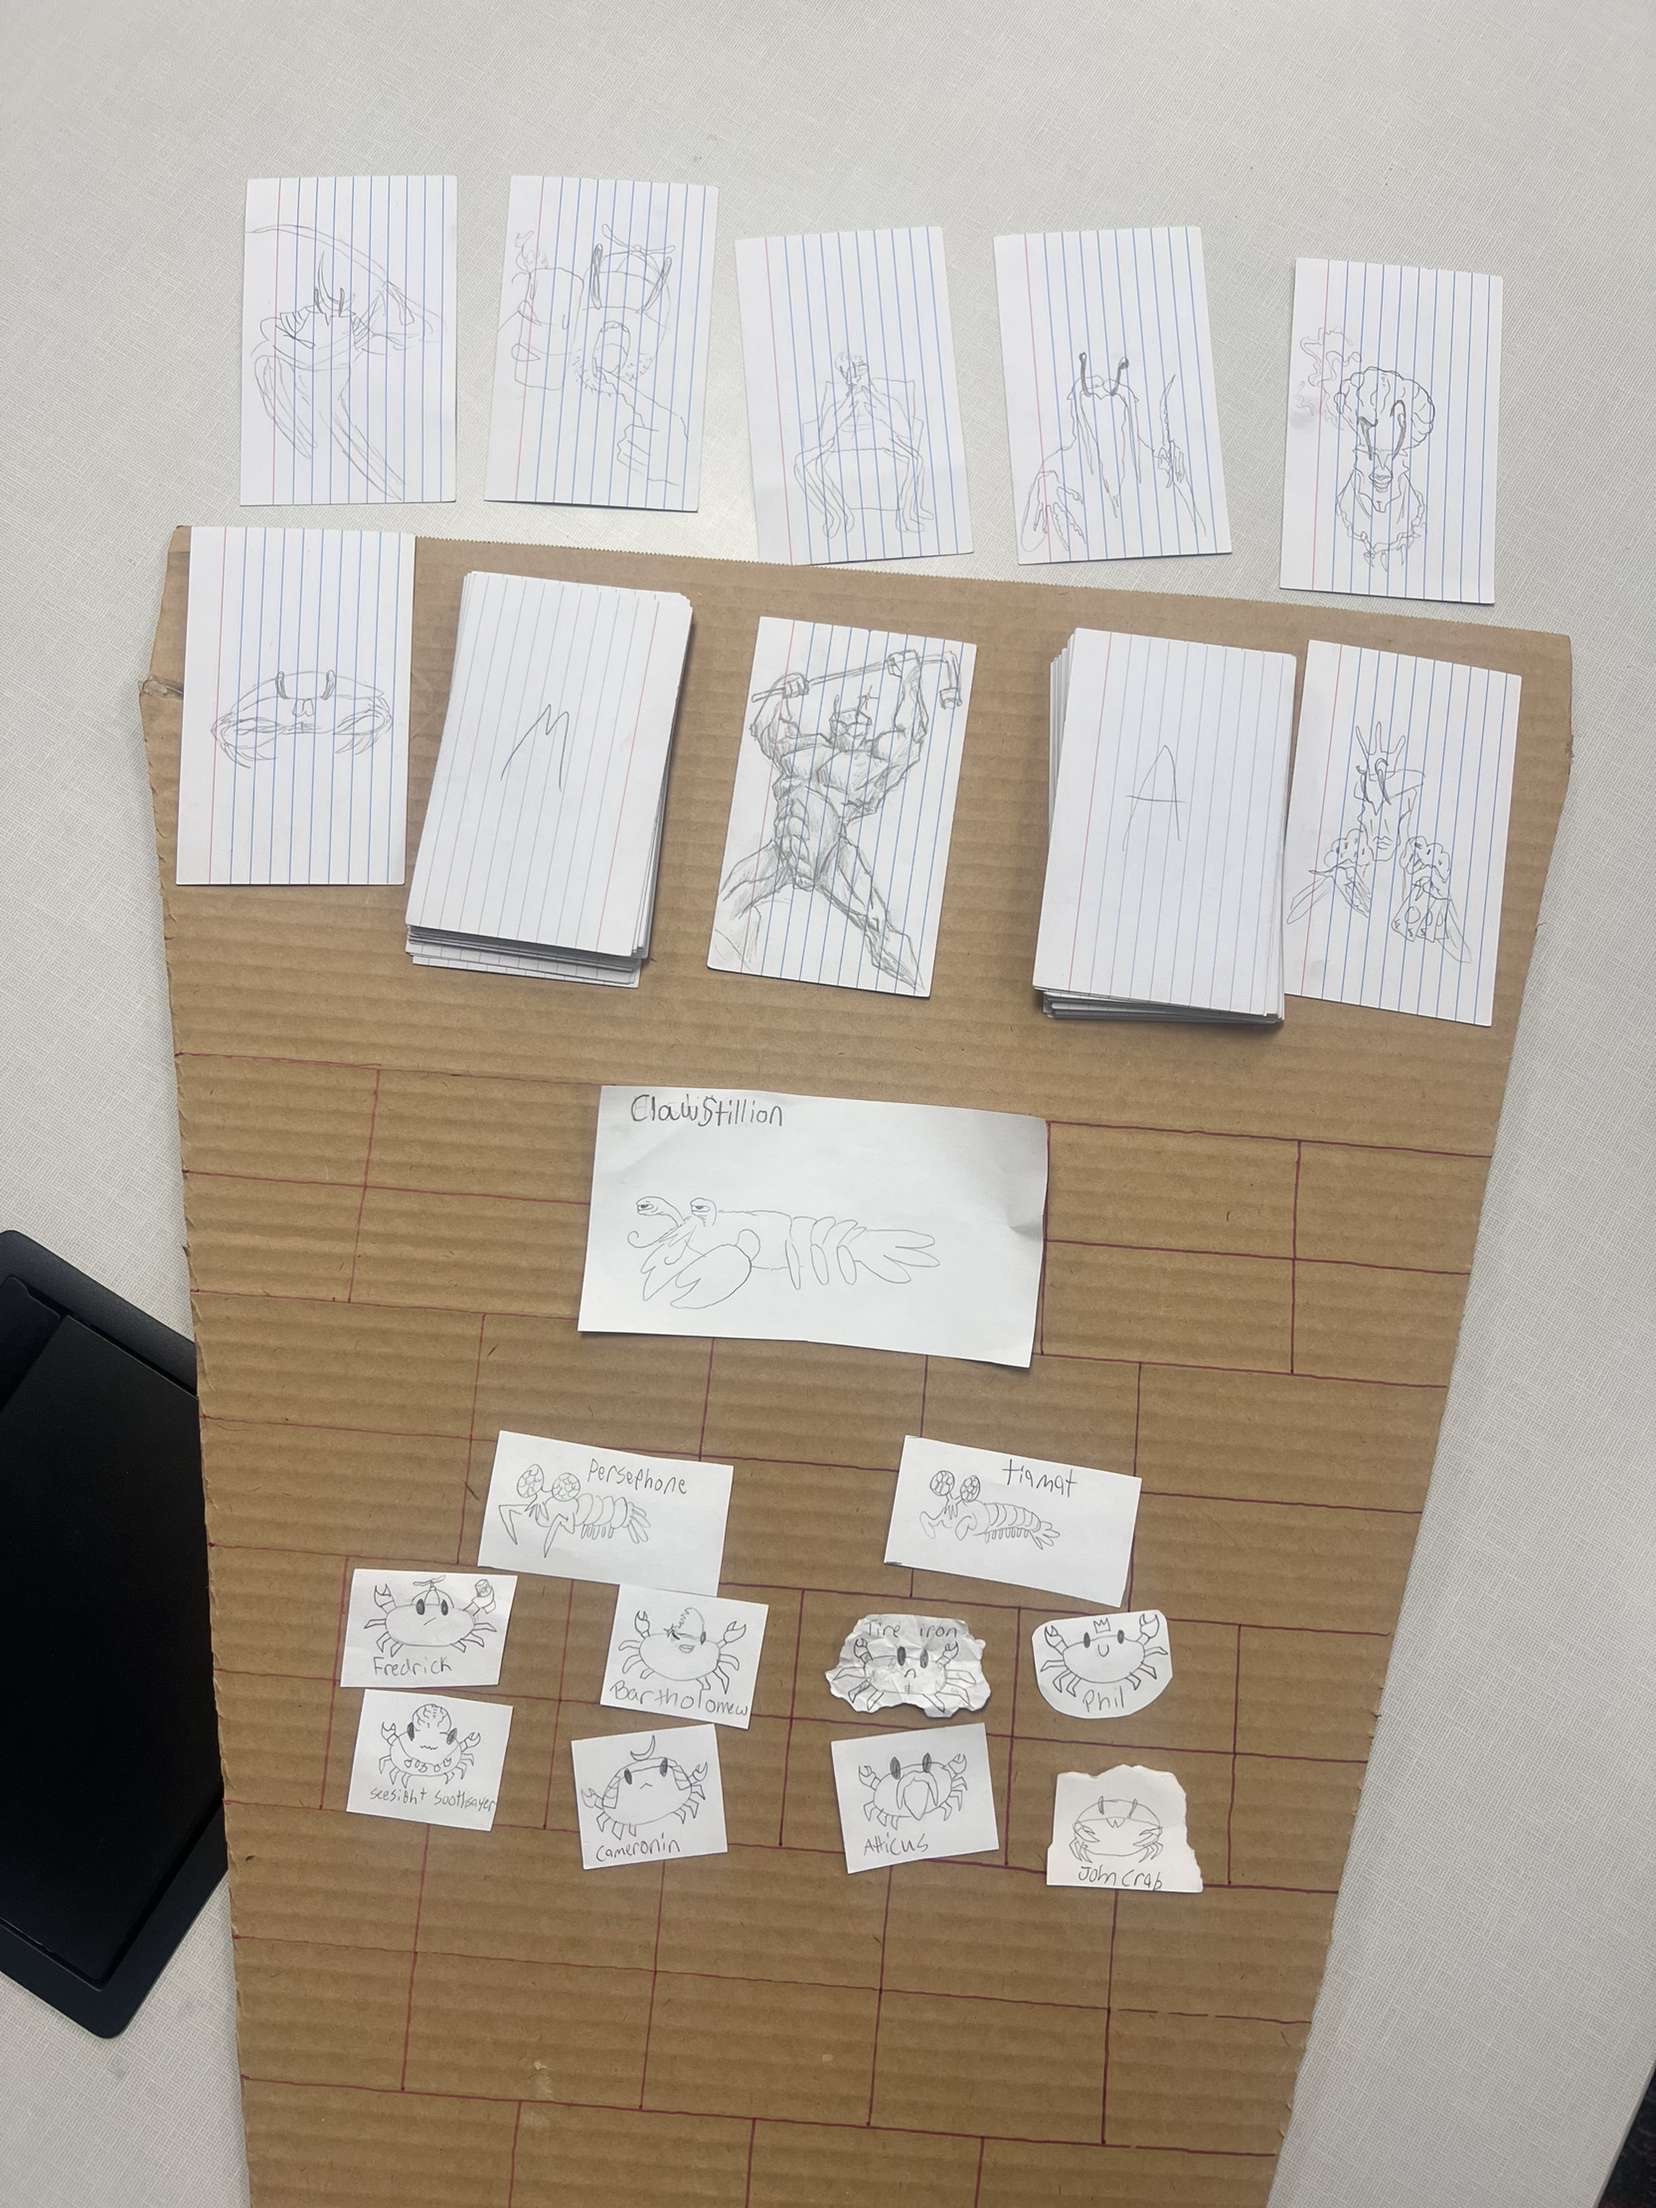 M
A
ClawStillion
Persephone
tiamat
Fredrick
Bartholomew
Tire iron
Phil
seesight Soothsayer
Cameronin
Atticus
John Crab